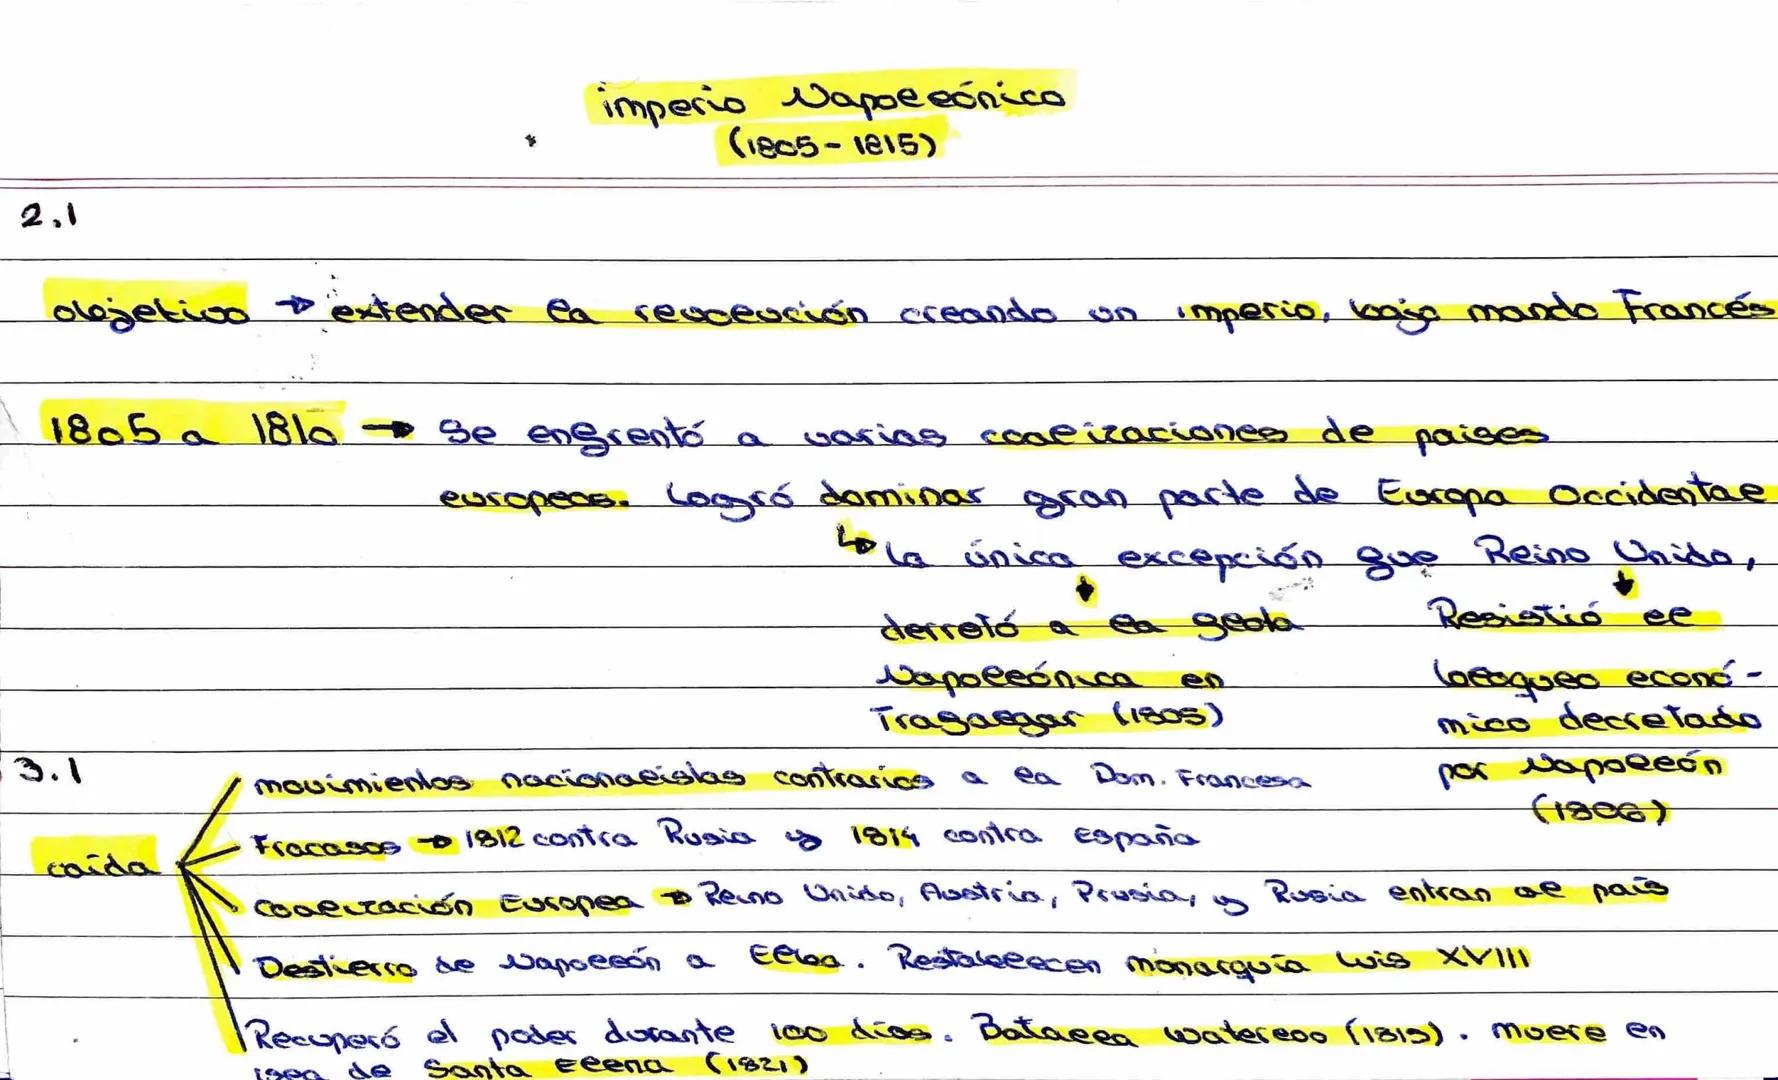 imperio Napoleónico
(1805-1815)
2.1
objetivo → extender la revolución creando un imperio, bajo mando Francés
1805 a 1810 → Se enfrentó a varias coalizaciones de paises
europeos. Logró dominar gran parte de Europa Occidental
↳ La única excepción fue Reino Unido,
derrotó a la flota
Napoleónica en
Trafalgar (1805)
Resistió el
bloqueo econó-
mico decretado
por Napoleón
(1806)
3.1
caída
movimientos nacionalistas contrarios a la Dom. Francesa
Fracasos → 1812 contra Rusia y 1814 contra España
Coalización Europea → Reino Unido, Austria, Prusia, y Rusia entran al país
Destierro de Napoleón a Elba. Restablecen monarquía Luis XVIII
Recuperó el poder durante 100 días. Batalla Waterloo (1815). muere en
isla de Santa Elena (1821)